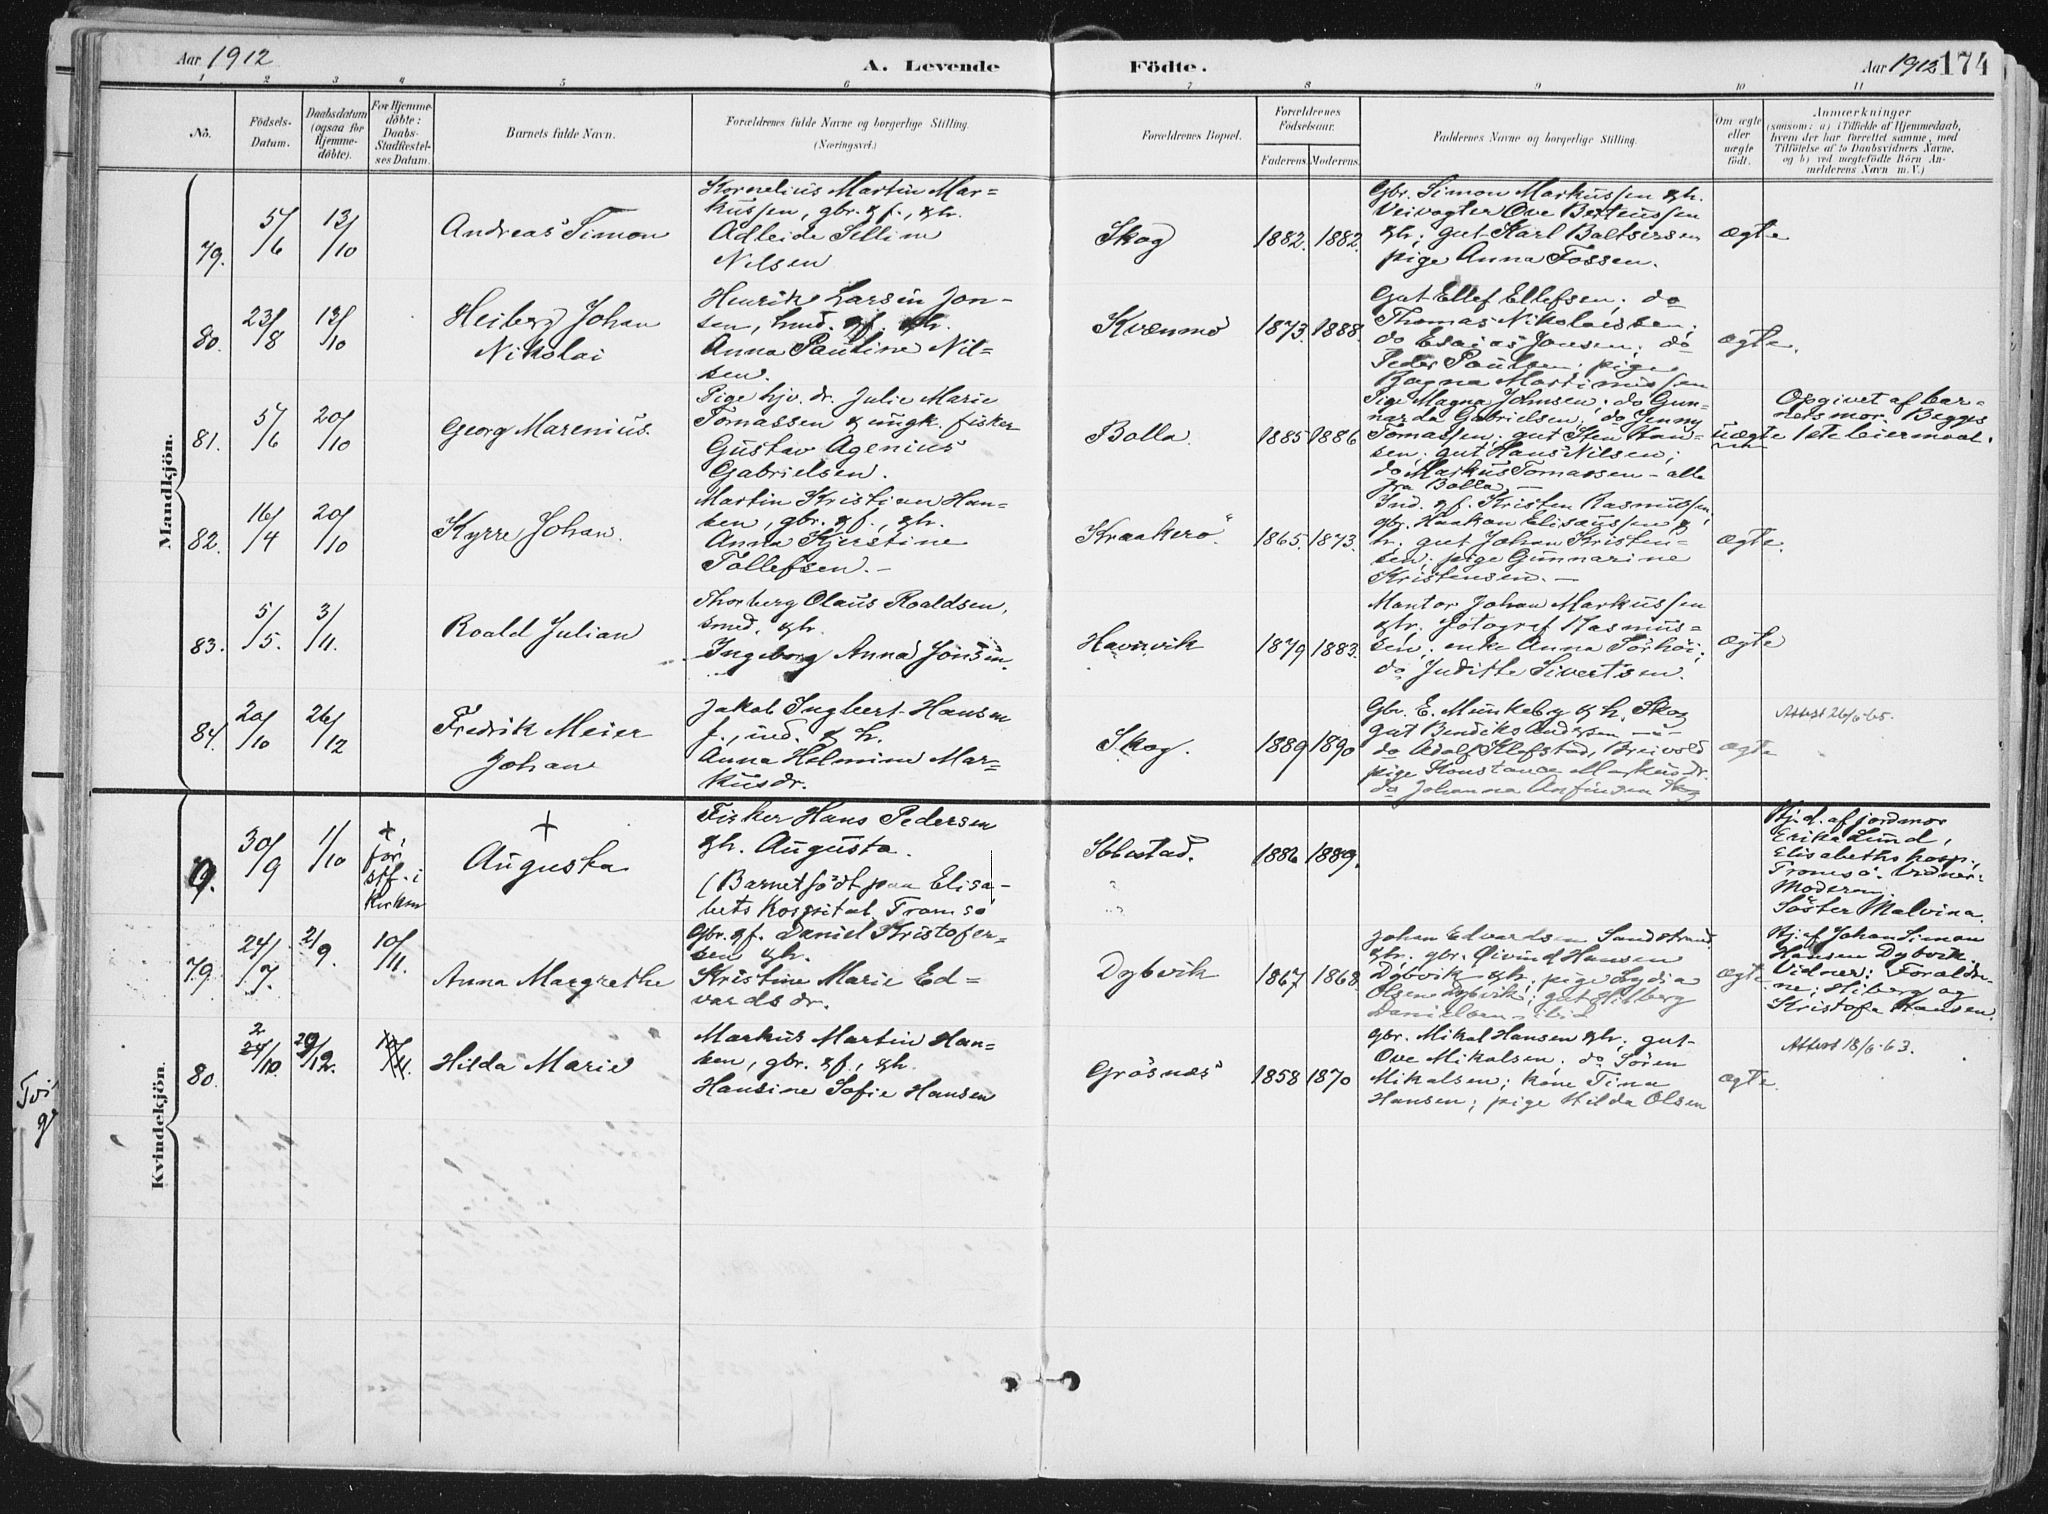 Aar 1912
A. Levende
Födte.
Aar 1912
174
1 2 3 4 5 6 7 8 9 10 11
No.
Födsels-
Datum.
Daabsdatum
(ogsaa for
Hjemme-
döbte).
For Hjemme-
döbte:
Daabs-
Stadfæstel-
ses Datum.
Barnets fulde Navn.
Forældrenes fulde Navne og borgerlige Stilling.
(Næringsvei.)
Forældrenes Bopæl.
Forældrenes
Födselsaar.
Faderens. Moderens.
Faddernes Navne og borgerlige Stilling.
Om ægte
eller
uægte
födt.
Anmærkninger
(saasom: a) (Tilfælde af Hjemmedaab,
hvem der har forrettet samme, med
Tilföielse af to Daabsvidners Navne,
og b) ved uægtefödte Börn An-
melderens Navn m. V.)
Mandkjön.
79.
5/6
13/10
Andreas Simon
Kornelius Martin Mar-
kussen, gbr. & f., & h.
Adleide Selline
Nilsen
Skog
1882. 1882.
Gbr. Simon Markussen & h.
Veivogter Ove Berteussen
& h; gut Karl Baltsersen
pige Anna Fossen.
ægte
80.
23/8
13/10
Heiberg Johan
Nikolai
Henrik Larsin Jon-
sen, & f. & h.
Anna Pauline Nil-
sen.
Kvænmo
1873. 1888.
Gut Ellef Ellefsen; do
Thomas Nikolaissen;
do Esaias Jonsen; do
Peder Paulsen; pige
Ragna Martinussen
ægte.
81.
5/6
20/10
Georg Marenius.
Pige hjv. dr. Julie Marie
Tomassen & ungk. fisker
Gustav Agenius
Gabrielsen.
Bolla.
1885 1886
Pige Magna Johnsen; do Gun-
narda Gabrielsen; do Jenny
Tomassen; gut Sten Han-
sen; gut Hans Nilsen;
do Markus Tomassen - alle
fra Bolla. —
uægte
Opgivet af bar-
nets mor. Begges
1ste leiermaal.
82.
16/4
20/10
Kyrre Johan.
Martin Kristian Han-
sen, gbr. & f., & h.
Anna Kjerstine
Tollefsen. —
Kraakerö
1865. 1873.
Ind. & f. Kristen Rasmussen,
gbr. Haakon Elisæussen &
h. gut Johan Kristen-
sen; pige Gunnarine
Kristensen. —
ægte.
83.
5/5.
3/11.
Roald Julian
Thorberg Olaus Roaldsen,
smed, & h.
Ingeborg Anna Jönsen
Havnvik
1879 1883.
Mantor Johan Markussen
& h. fotograf Rasmus-
sen; enke Anna Sörhöi;
do Judithe Sivertsen.
ægte
84.
20/10
26/12
Fredrik Meier
Johan
Jakob Ingbert Hansen
f., ind. & h.
Anna Helmine Mar-
kusdr.
Skog.
1889 1890
Gbr. E. Munkeby & h. Skog
gut Bendiks Andersen —"—
do Adolf Klefstad, Breivold
pige Konstance Markusdr.
do Johanna Anfinsen Skog
ægte
Attest 26/6-65.
Kvindekjön.
9.
30/9
1/10
+,
for
stf. i
kirken
+
Augusta
Fisker Hans Pedersen
& h. Augusta.
(Barnet födt paa Elisa-
bets hospital, Tromsö
Ibbestad.
1886 1889.
Hj. d. af jordmor
Erika Lund,
Elisabeths hosp.,
Tromsö. Vidner:
Moderen.
Söster Malvina.
79.
24/7.
2/9.
10/11.
Anna Margrethe
Gbr. & f. Daniel Kristofer-
sen & h.
Kristine Marie Ed-
vardsdr.
Dybvik
1867 1868
Johan Edvardsen Sandstrand
& h. gbr. Öivind Hansen
Dybvik & h; pige Lydia
Olsen Dybvik; gut Hilberg
Danielsen - ibid
ægte
Hj. af Johan Simon
Hansen Dybvik.
Vidner: Foraldre-
ne; Hiberg og
Kristofer Hansen.
80.
2
24/10.
29/12.
Hilda Marie
Markus Martin Han-
sen, gbr. & f., & h.
Hansine Sofie Hansen
Grösnes
1858 1870
gbr. Mikal Hansen & h. gut
Ove Mikalsen; do Sören
Mikalsen; kone Tina
Hansen; pige Hilda Olsen
ægte.
Attest 18/6-63.